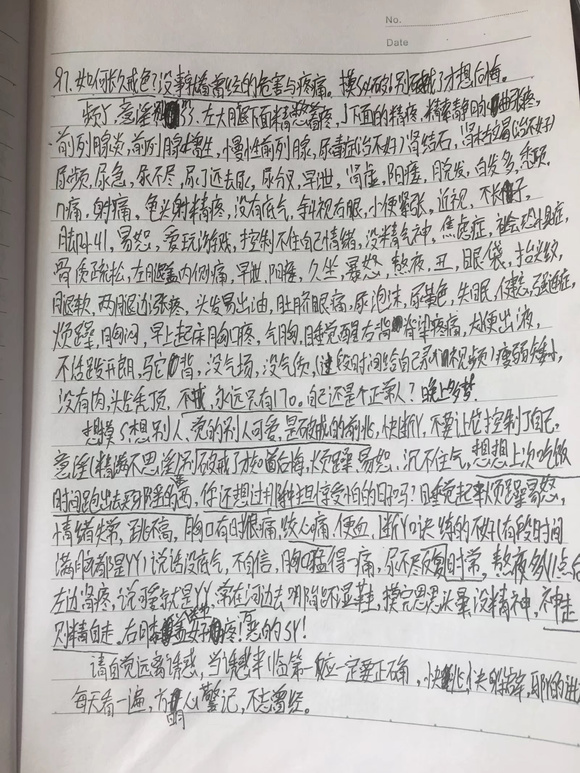 No.
Date
97.如何长久戒色?没事就看看曾经的危害与疼痛。摸SY的,别破戒了才想后悔。
频了,意淫SY了。左大腿下面精索着疼,下面的精疼,精索静脉曲张疼,
前列腺炎,前列腺增生,慢性前列腺,尿毒症(治不好)肾结石,
尿频,尿急,尿不尽,尿了还去尿,尿分叉,早泄,肾虚,阳痿,脱发,白发多,
痛,射痛,龟头射精疼,没有底气,斜视右眼,小便紧张,近视,不长
易怒,爱玩游戏,控制不住自己情绪,没精气神,焦虑症,社会恐惧症,
骨质疏松,左膝盖内侧痛,早泄,阳痿,久坐,暴怒,熬夜,丑,眼袋,抬头纹,
腿软,两腿边胀疼,头发易出油,肚脐眼痛,尿泡沫,尿黄色,失眠,健忘,强迫症,
烦躁,胸闷,早上起床胸口疼,气胸,睡觉醒右背脊梁疼痛,大便出液,
不活跃开朗,驼背,没气场,没气质,(这段时间给自己录视频)瘦弱矮小,
没有肉,头秃顶,永远只有170。自己还是个正常人?晚上多梦
想摸S,想别人,觉的别人可爱,是破戒的前兆,快断Y,不要让它控制了自己,
意淫(精满不思淫)别破戒了才知道后悔,烦躁易怒,沉不住气,想想上次吃饭
时间跑出去买那里的药,你还想过那种担惊受怕的日子吗?睡觉起来烦躁暴怒,
情绪失常,跳不高,胸口有时很痛,收心痛,便血,断YY口诀练的不好(有段时间
满脑都是YY)说话没底气,不自信,胸口猛得一痛,尿不尽反复时常,熬夜多(11点
左边肾疼,说睡觉就是YY,常在河边走哪有不湿鞋,摸完思思头晕没精神,神走
则精自走。疼!万恶的SY!
请自觉远离诱惑,当诱惑来临第一反应一定要正确,
每天看一遍,方明人心警记,不忘曾经。